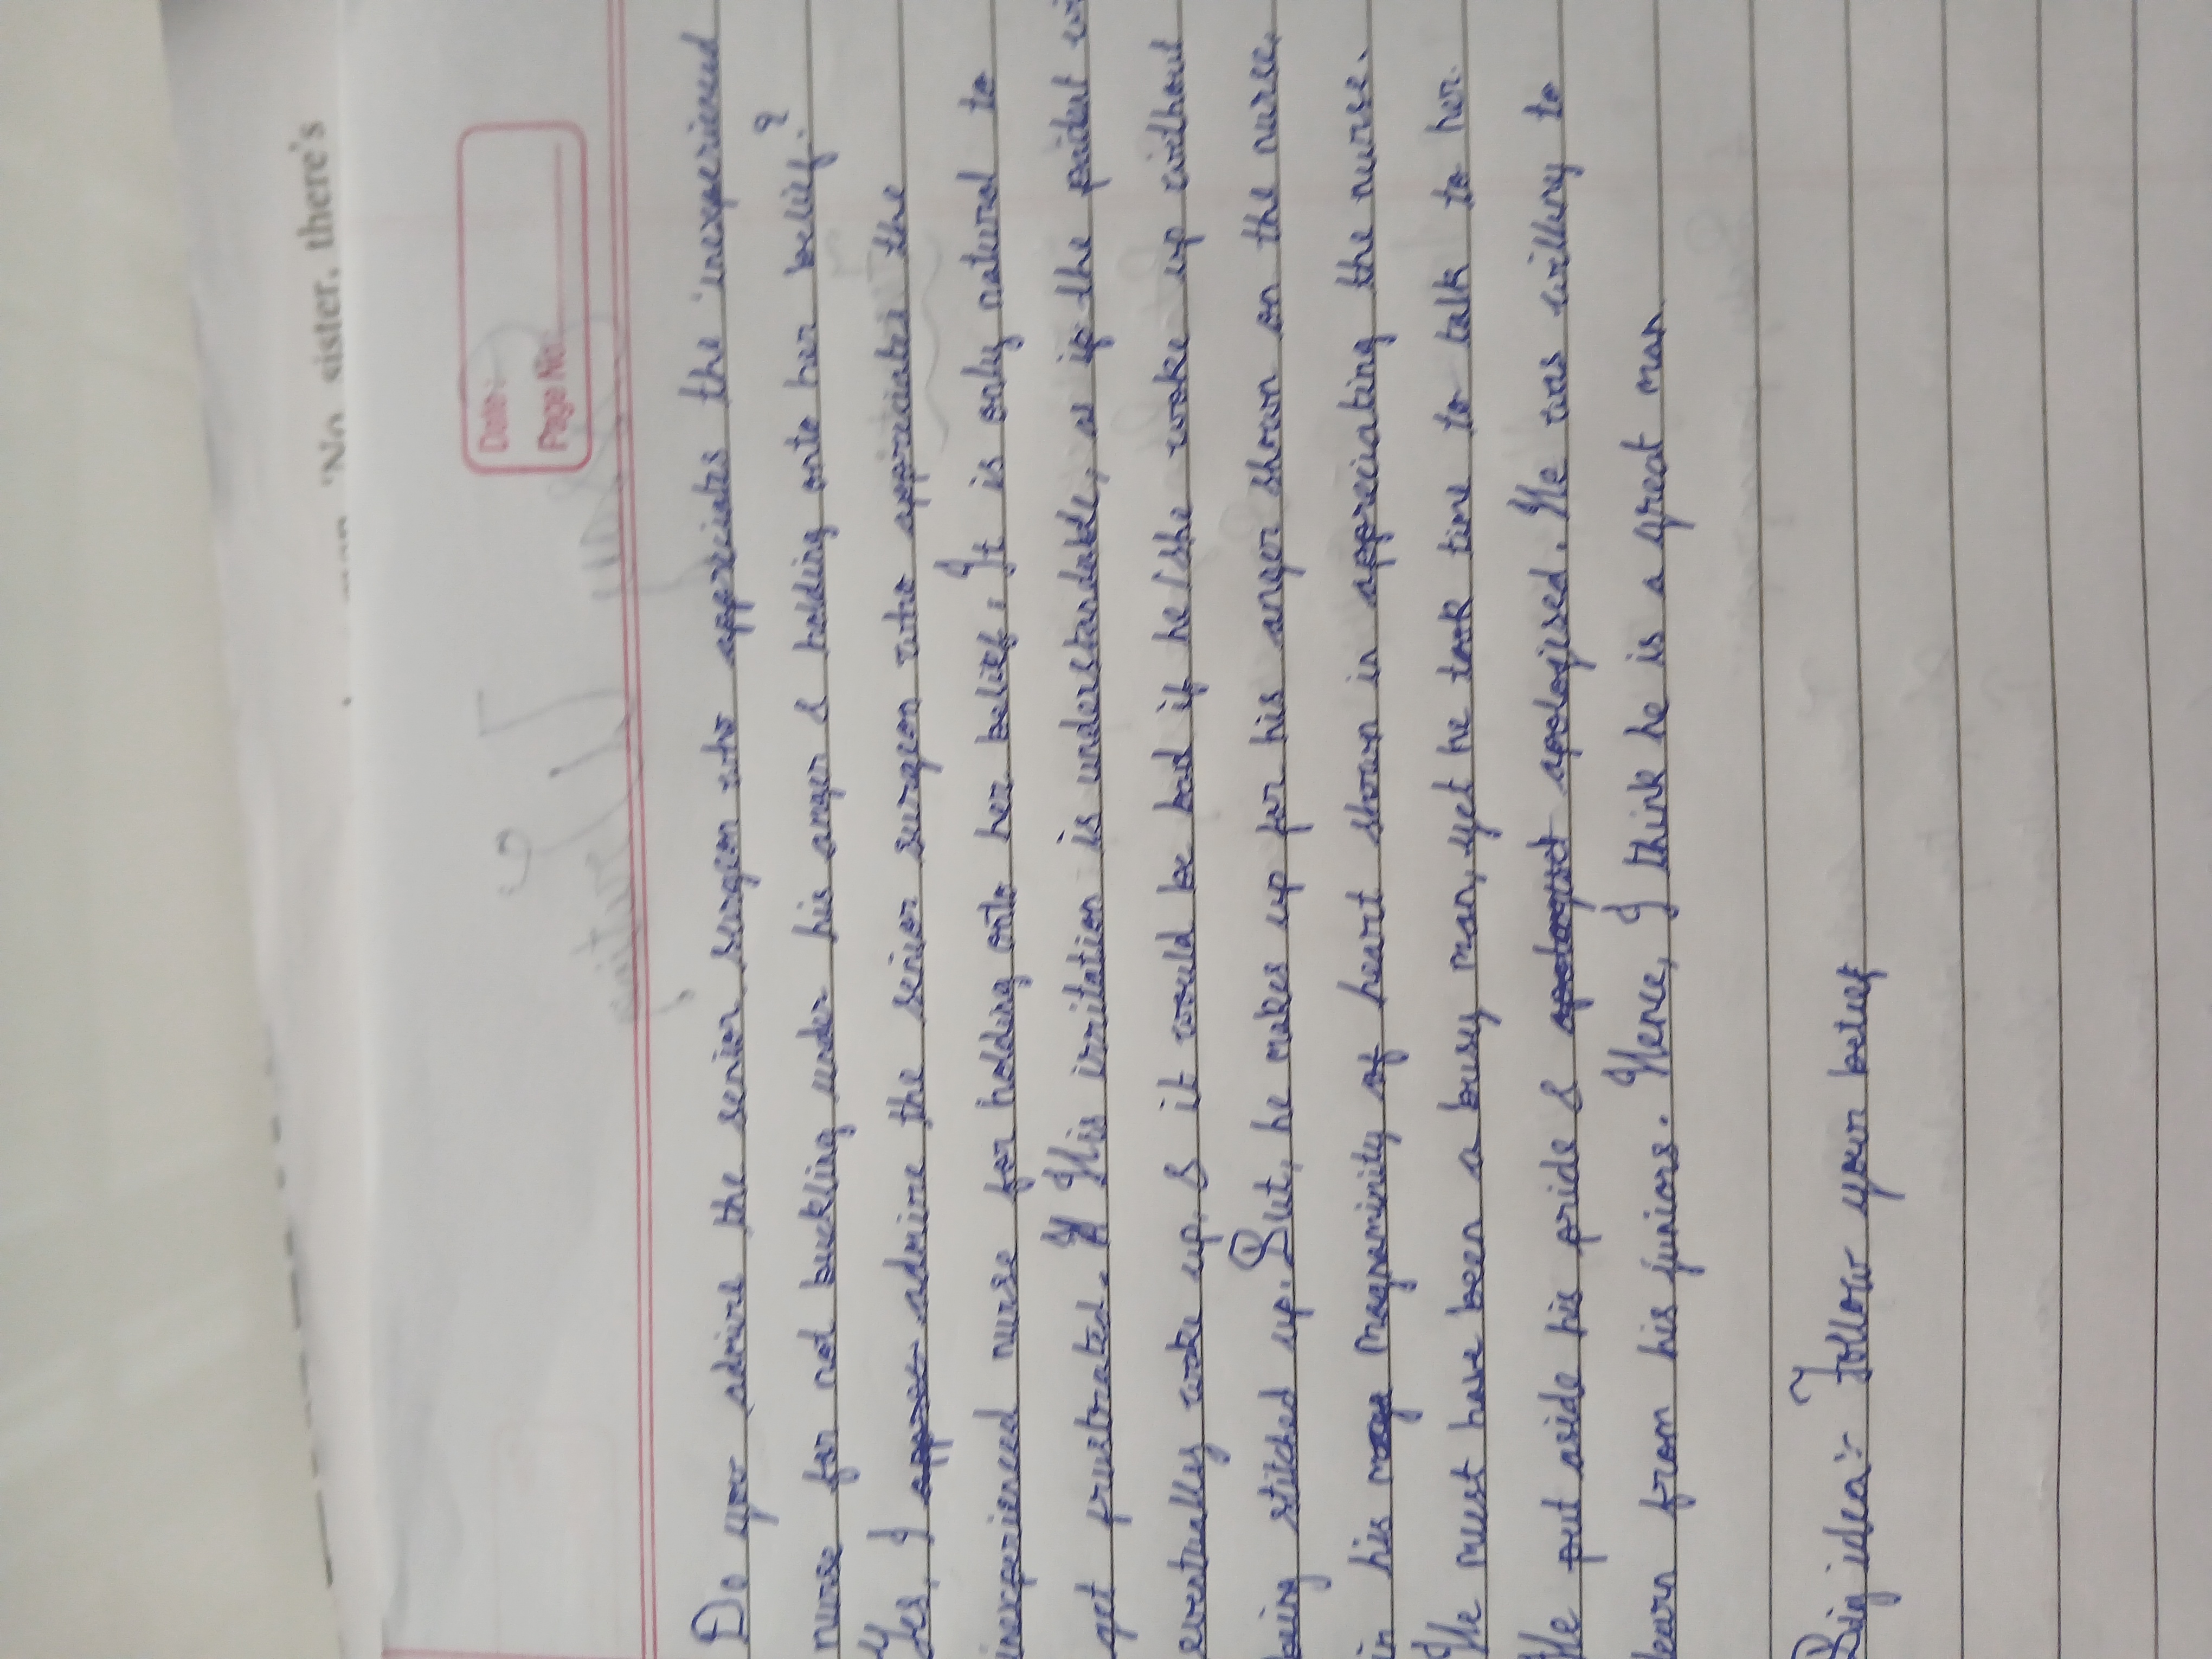 "No, sister, there's
Date:
Page No.
Do you admire the senior surgeon who appreciates the inexperienced
nurse for not buckling under his anger & holding onto her belief?
Yes, I admire the senior surgeon who appreciates the
inexperienced nurse for holding onto her beliefs. It is only natural to
get frustrated. His irritation is understandable, as if the patient
eventually woke up & it would be bad if he/she woken up without
being stitched up. But, he makes up for his anger shown on the nurse,
in his magnaminity of heart shown in appreciating the nurse.
He must have been a busy man, yet he took time to talk to her.
He put aside his pride & apologised. He was willing to
learn from his juniors. Hence, I think he is a great man.
Big idea:- Follow your belief